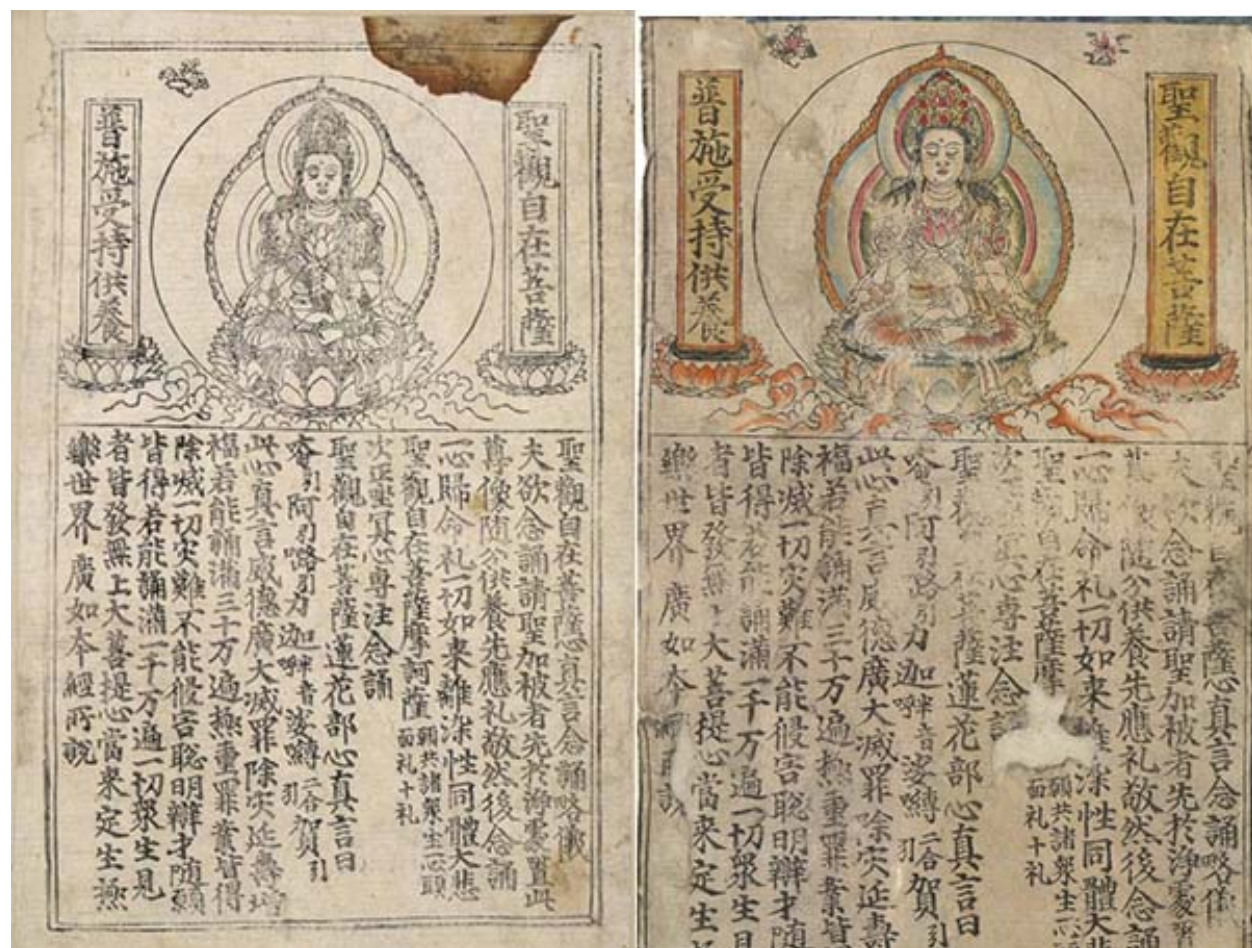 聖觀自在菩薩
普施受持供養
聖觀自在菩薩心真言念誦略儀
夫欲念誦請聖加被者先於淨處置此
尊像随分供養先應礼敬然後念誦
一心歸命礼一切如来離染性同體大悲
聖觀自在菩薩摩訶薩 願共諸衆生一心頭面礼十礼
次正坐冥心專注念誦
聖觀自在菩薩蓮花部心真言曰
唵引阿引嚕引力迦半音娑嚩二合賀引
此心真言威德廣大滅罪除灾延壽增
福若能誦滿三十万遍極重罪業皆得
除滅一切灾難不能侵害聡明辯才随願
皆得若能誦滿一千万遍一切衆生見
者皆發無上大菩提心當来定生極
樂世界廣如夲經所說
聖觀自在菩薩
普施受持供養
菩薩心真言念誦略儀
念誦請聖加被者先於淨處
随分供養先應礼敬然後念誦
一心歸命礼一切如来 染性同體大
聖 自在菩薩摩 願共諸衆生一心 面礼十礼
心專注念
聖 在菩薩蓮花部心真言曰
唵引阿引嚕引力迦半音娑嚩二合賀引
此心真言威德廣大滅罪除灾延壽
福若能誦滿三十万遍極重罪業皆
除滅一切灾難不能侵害聡明辯才随
皆得若能誦滿一千万遍一切衆生見
者皆發無上大菩提心當来定生
樂世界廣如夲